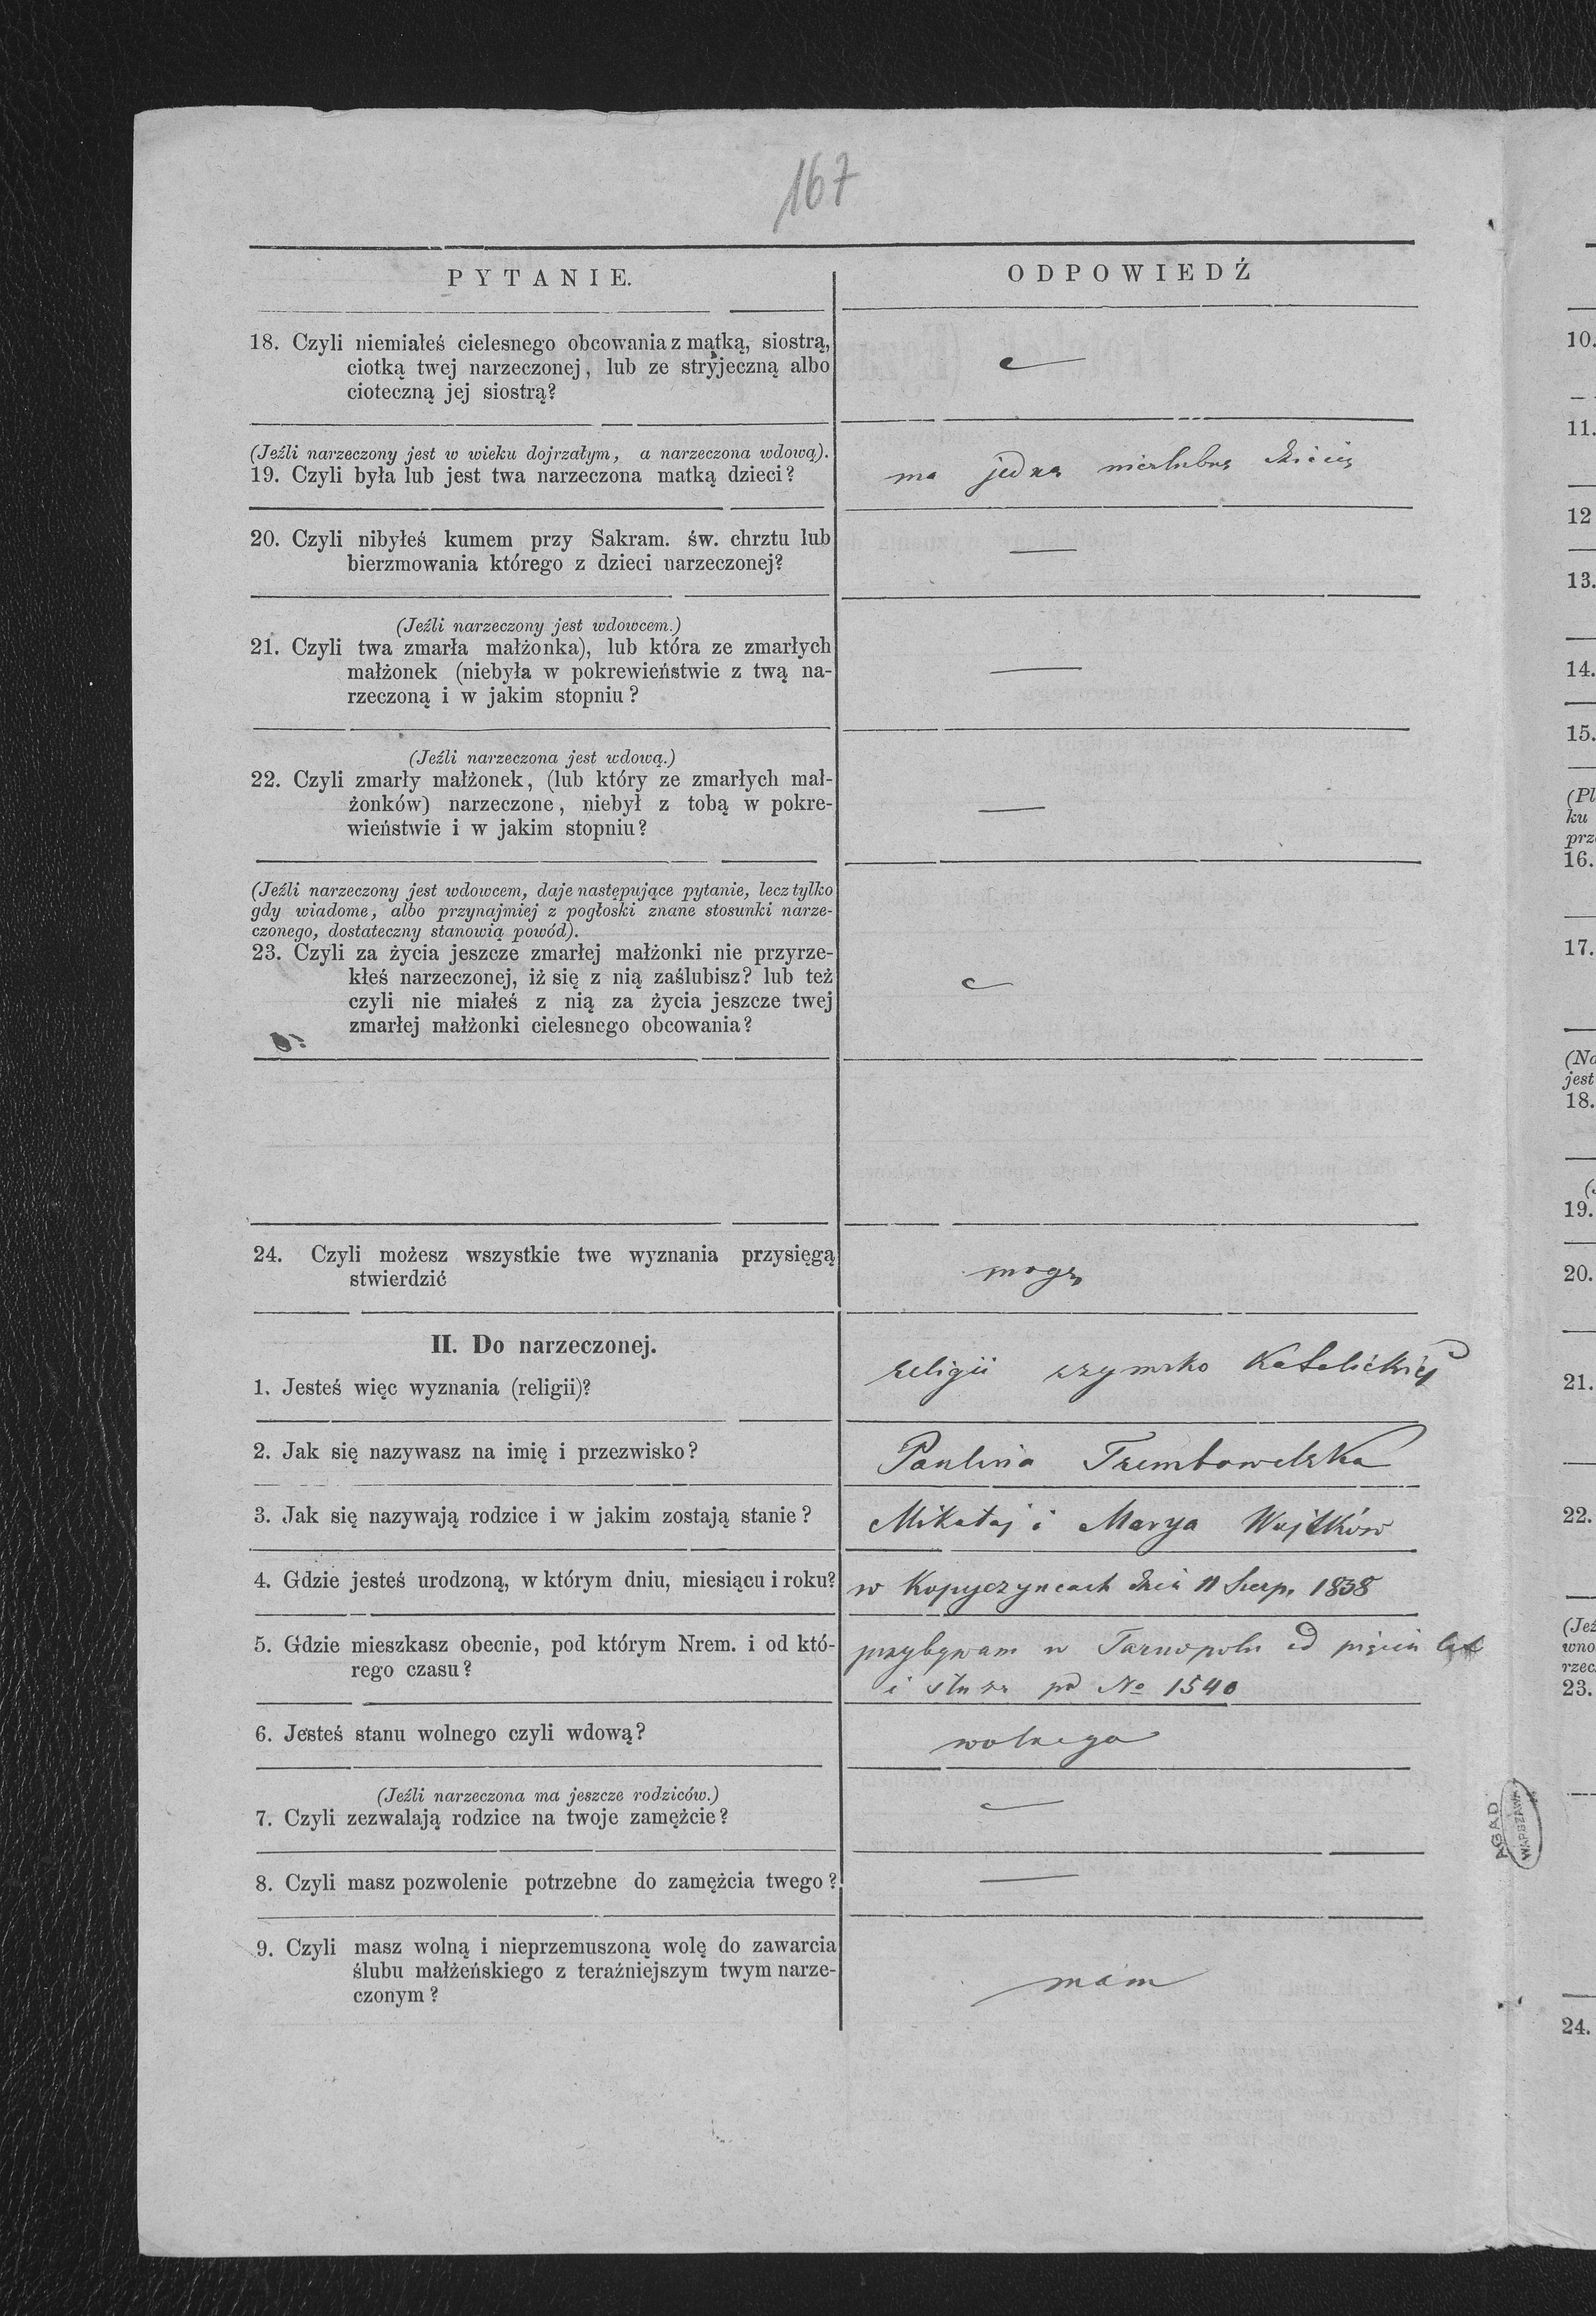 167
PYTANIE.
ODPOWIEDŹ
18. Czyli niemiałeś cielesnego obcowania z matką, siostrą,
ciotką twej narzeczonej, lub ze stryjeczną albo
cioteczną jej siostrą?
(Jeźli narzeczony jest w wieku dojrzałym, a narzeczona wdową).
19. Czyli była lub jest twa narzeczona matką dzieci?
ma jedną nieślubną dziecię
20. Czyli nibyłeś kumem przy Sakram. św. chrztu lub
bierzmowania którego z dzieci narzeczonej?
(Jeźli narzeczony jest wdowcem.)
21. Czyli twa zmarła małżonka), lub która ze zmarłych
małżonek (niebyła w pokrewieństwie z twą na-
rzeczoną i w jakim stopniu?
(Jeźli narzeczona jest wdową.)
22. Czyli zmarły małżonek, (lub który ze zmarłych mał-
żonków) narzeczone, niebył z tobą w pokre-
wieństwie i w jakim stopniu?
(Jeźli narzeczony jest wdowcem, daje następujące pytanie, lecz tylko
gdy wiadome, albo przynajmiej z pogłoski znane stosunki narze-
czonego, dostateczny stanowią powód).
23. Czyli za życia jeszcze zmarłej małżonki nie przyrze-
kłeś narzeczonej, iż się z nią zaślubisz? lub też
czyli nie miałeś z nią za życia jeszcze twej
zmarłej małżonki cielesnego obcowania?
24. Czyli możesz wszystkie twe wyznania przysięgą
stwierdzić
mogę
II. Do narzeczonej.
1. Jesteś więc wyznania (religii)?
religii rzymsko Katolickiej
2. Jak się nazywasz na imię i przezwisko?
Paulina Trembowelska
3. Jak się nazywają rodzice i w jakim zostają stanie?
Mikołaj i Marya Wujtków
4. Gdzie jesteś urodzoną, w którym dniu, miesiącu i roku?
w Kopyczyncach dnia 11 Sierp. 1838
5. Gdzie mieszkasz obecnie, pod którym Nrem. i od któ-
rego czasu?
przybywam w Tarnopolu od pięciu lat
i służę pd No 1540
6. Jesteś stanu wolnego czyli wdową?
wolnego
(Jeźli narzeczona ma jeszcze rodziców.)
7. Czyli zezwalają rodzice na twoje zamężcie?
8. Czyli masz pozwolenie potrzebne do zamężcia twego?
9. Czyli masz wolną i nieprzemuszoną wolę do zawarcia
ślubu małżeńskiego z teraźniejszym twym narze-
czonym?
mam
AGAD
WARSZAWA
10.
11.
12
13.
14.
15.
(Pl
ku
prz
16.
17.
(Na
jest
18.
19.
20.
21.
22.
(Jeź
wno
rzec
23.
24.